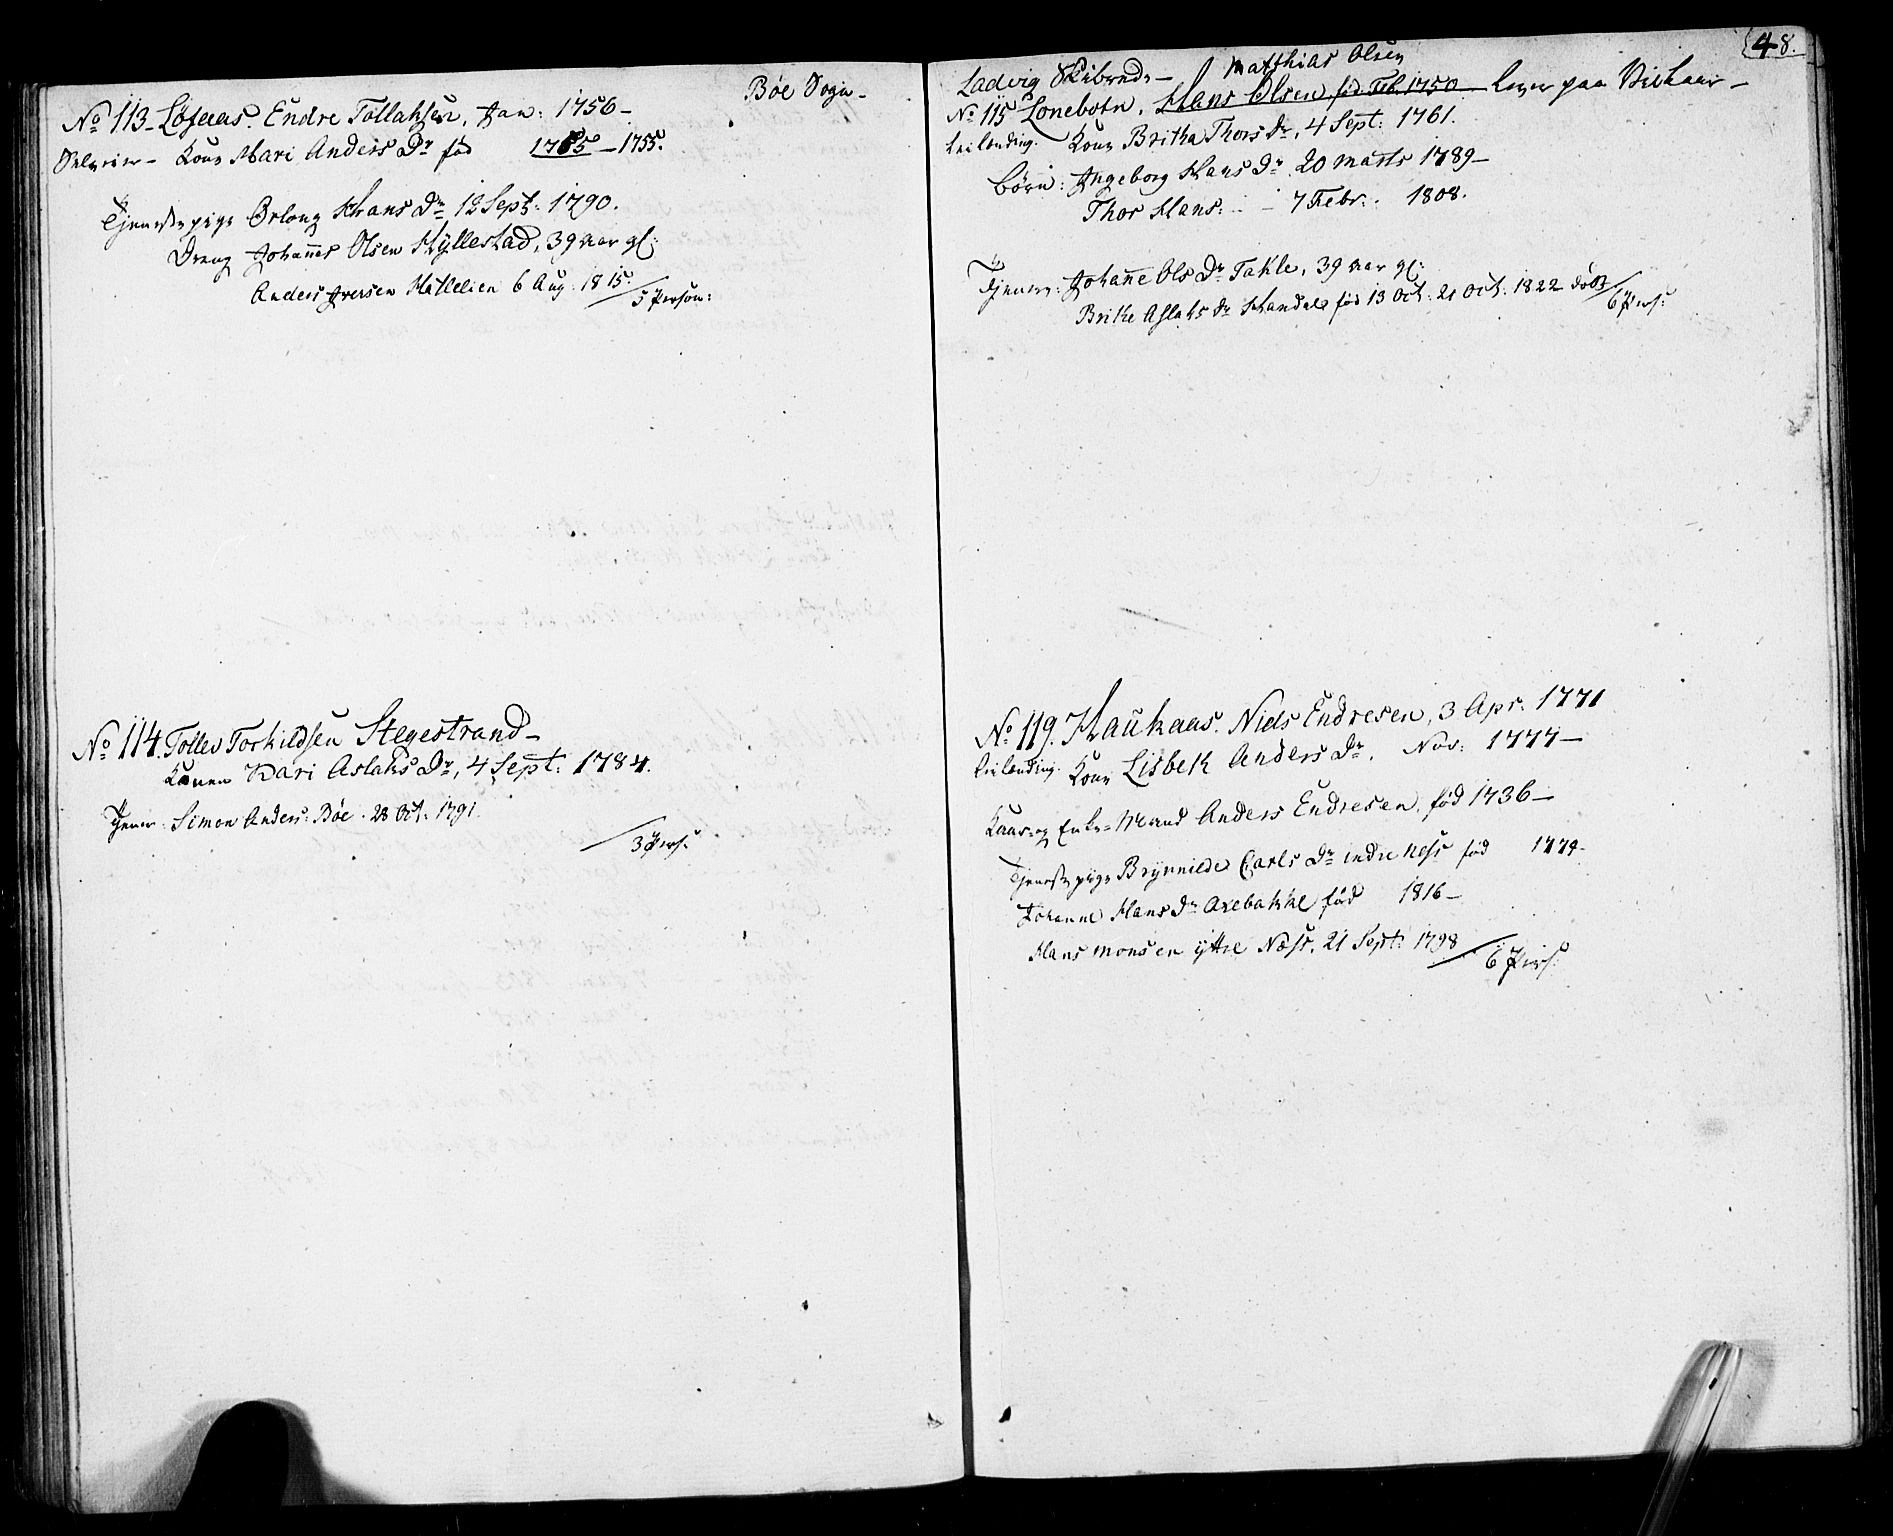 Bøe Sogn -
No 113 - Løfaas. Endre Tollaksen, Jan: 1756 -
Selveier - Kone Mari Anders Dr. født 1785 - 1755.
Tjenestepige Ørlong Hans Dr. 12 Sept: 1790.
Dreng Johannes Olsen Hyllestad, 39 aar gl:
Anders Iversen Hatlelien 6 Aug: 1815.
5 Person:
No 114. Tollev Torkildsen Stegestrand -
Konen Kari Aslaks Dr, 4 Sept: 1784.
Tjener: Simon Anders: Bøe. 28 Oct. 1791.
3 Pers:
48.
Ladvig Skibrede - Matthias Olsen
No 115 Lonebotn. Hans Olsen, fød Feb. 1750 - lever paa
Leilending. Kone Britha Thors Dr, 4 Sept: 1761.
Børn: Ingeborg Hans Dr 20 Marts 1789 -
Thor Hans: - 7 Febr. 1808.
Tjener: Johanne Ols Dr Takle, 39 aar gl:
Brite Aslaks Dr født 13 Oct: 21 Oct: 1822 døbt
6 Pers:
No 119. Haukaas. Niels Endresen, 3 Apr: 1771
Leilending. Kone Lisbeth Anders Dr. Nov: 1777 -
Kaar og Enke-Mand Anders Endresen, fød 1736 -
Tjenestepige Brynnilde Carls Dr indre Ness fød 1774 -
Johanne Hans Dr Axebakke fød 1816 -
Hans Monsen yttre Næss, 21 Sept: 1798
6 Pers: